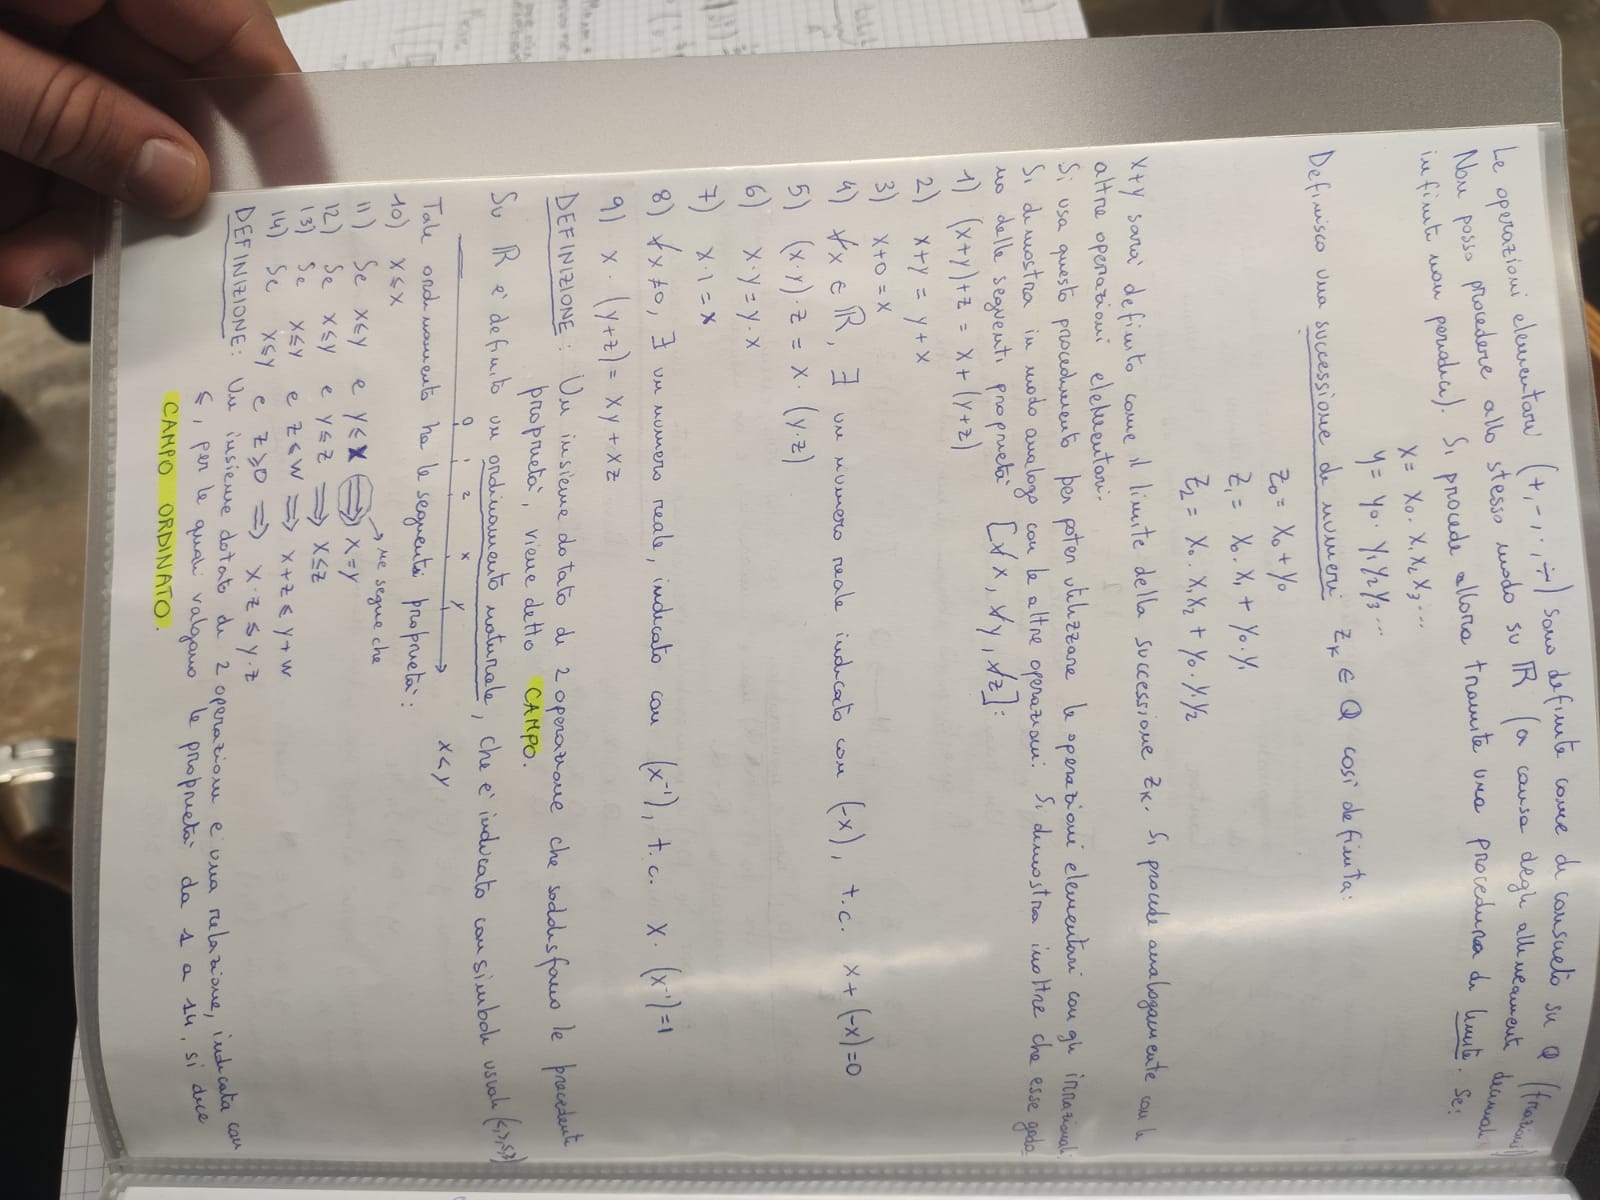 Le operazioni elementari (+, -, ·, ÷) sono definite come di consueto su Q (frazioni)
Non posso procedere allo stesso modo su ℝ (a causa degli allineamenti decimali
infiniti non periodici). Si procede allora tramite una procedura di limite. Se:
x = x₀. x₁ x₂ x₃ ...
y = y₀. y₁ y₂ y₃ ...
Definisco una successione di numeri z_k ∈ Q così definita:
z₀ = x₀ + y₀
z₁ = x₀. x₁ + y₀. y₁
z₂ = x₀. x₁x₂ + y₀. y₁y₂
x+y sarà definito come il limite della successione z_k. Si procede analogamente con le
altre operazioni elementari.
Si usa questo procedimento per poter utilizzare le operazioni elementari con gli irrazionali.
Si dimostra in modo analogo con le altre operazioni. Si dimostra inoltre che esse godo
no delle seguenti proprietà [∀x, ∀y, ∀z]:
1) (x+y)+z = x+(y+z)
2) x+y = y+x
3) x+0 = x
4) ∀x ∈ ℝ, ∃ un numero reale indicato con (-x), t.c. x+(-x)=0
5) (x·y)·z = x·(y·z)
6) x·y = y·x
7) x·1 = x
8) ∀x ≠ 0, ∃ un numero reale, indicato con (x⁻¹), t.c. x·(x⁻¹)=1
9) x·(y+z) = xy+xz
DEFINIZIONE: Un insieme dotato di 2 operazione che soddisfano le precedenti
proprietà, viene detto CAMPO.
Su ℝ è definito un ordinamento naturale, che è indicato con simboli usuali (<,>,≤,≥)
0 1 2 x y x<y
Tale ordinamento ha le seguenti proprietà:
10) x≤x
11) Se x≤y e y≤x ⟹ x=y → ne segue che
12) Se x≤y e y≤z ⟹ x≤z
13) Se x≤y e z≤w ⟹ x+z≤y+w
14) Se x≤y e z≥0 ⟹ x·z≤y·z
DEFINIZIONE: Un insieme dotato di 2 operazioni e una relazione, indicata con
≤, per le quali valgono le proprietà da 1 a 14, si dice
CAMPO ORDINATO.